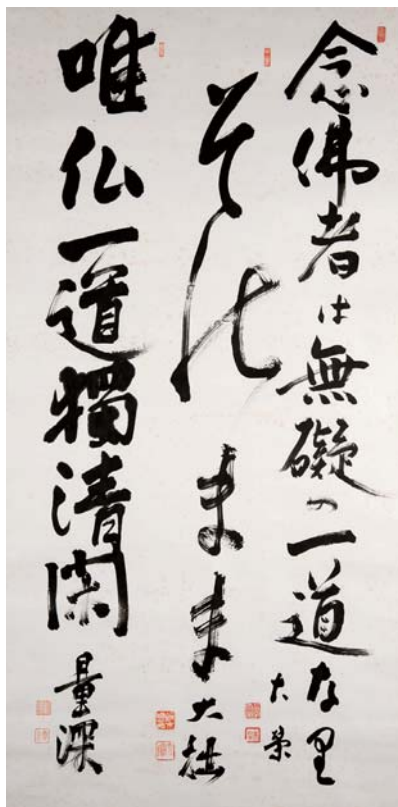 念佛者は無礙の一道なり
大榮
そのまま
大拙
唯仏一道獨清閑
量深